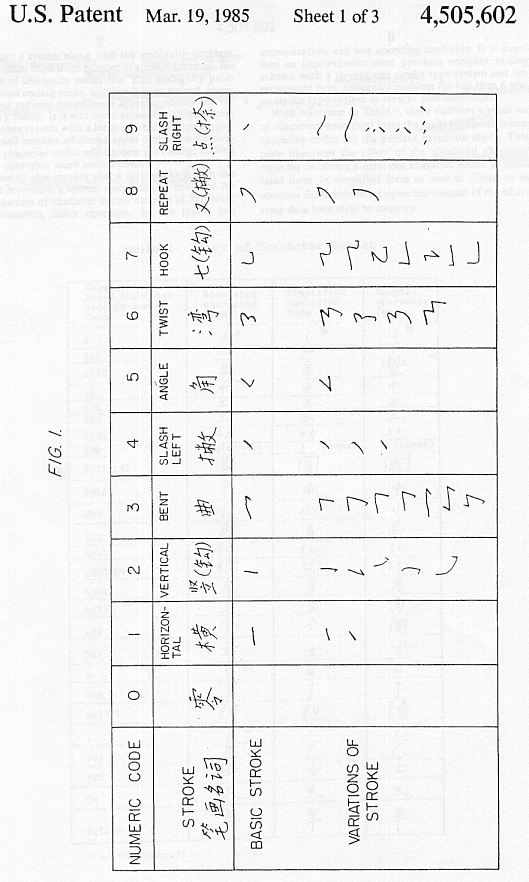 U.S. Patent Mar. 19, 1985 Sheet 1 of 3 4,505,602
FIG. 1.
NUMERIC CODE 0 1 2 3 4 5 6 7 8 9
STROKE HORIZON-TAL VERTICAL BENT SLASH LEFT ANGLE TWIST HOOK REPEAT SLASH RIGHT
笔画名词 零 横 竖(钩) 曲 撇 角 湾 七(钩) 又(撇) 点(捺)
BASIC STROKE
VARIATIONS OF STROKE